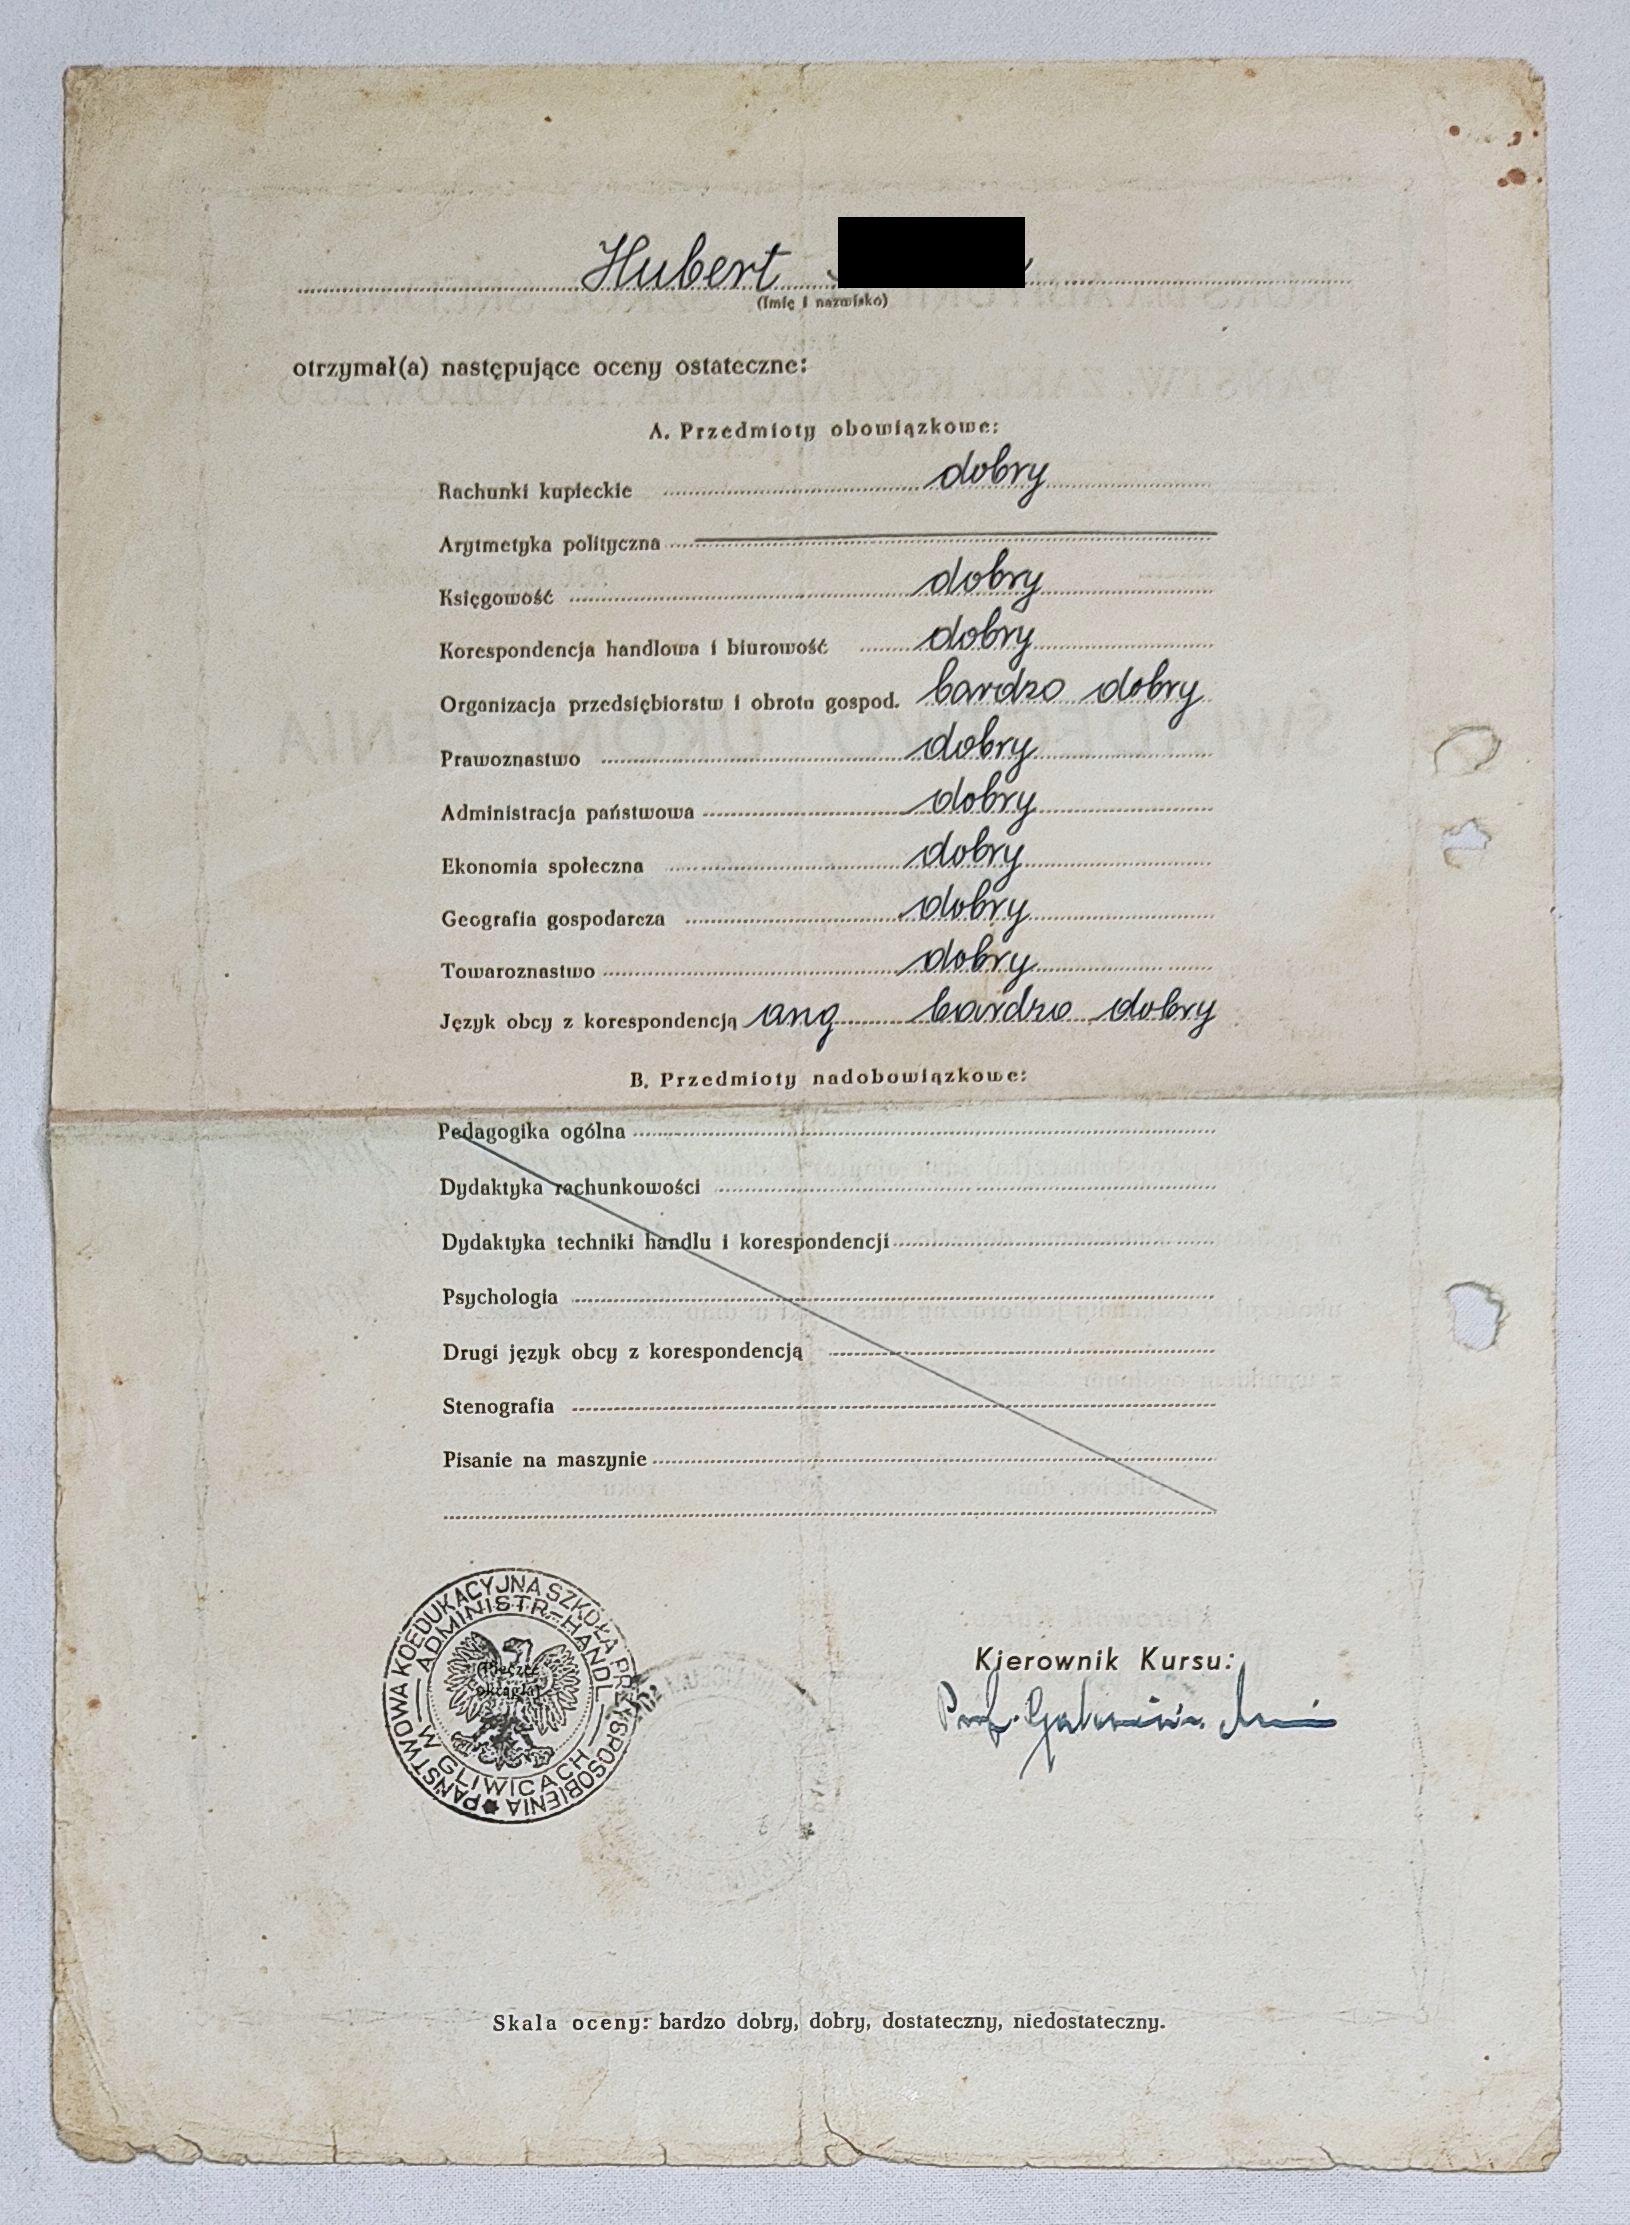 Hubert
(Imię i nazwisko)
otrzymał(a) następujące oceny ostateczne:
A. Przedmioty obowiązkowe:
Rachunki kupieckie dobry
Arytmetyka polityczna
Księgowość dobry
Korespondencja handlowa i biurowość dobry
Organizacja przedsiębiorstw i obrotu gospod. bardzo dobry
Prawoznastwo dobry
Administracja państwowa dobry
Ekonomia społeczna dobry
Geografia gospodarcza dobry
Towaroznastwo dobry
Język obcy z korespondencją ang bardzo dobry
B. Przedmioty nadobowiązkowe:
Pedagogika ogólna
Dydaktyka rachunkowości
Dydaktyka techniki handlu i korespondencji
Psychologia
Drugi język obcy z korespondencją
Stenografia
Pisanie na maszynie
PAŃSTWOWA KOEDUKACYJNA SZKOŁA PRZYSPOSOBIENIA
ADMINISTR.-HANDL.
W GLIWICACH
(Pieczęć
okrągła)
Kierownik Kursu:
Prof.
Skala oceny: bardzo dobry, dobry, dostateczny, niedostateczny.